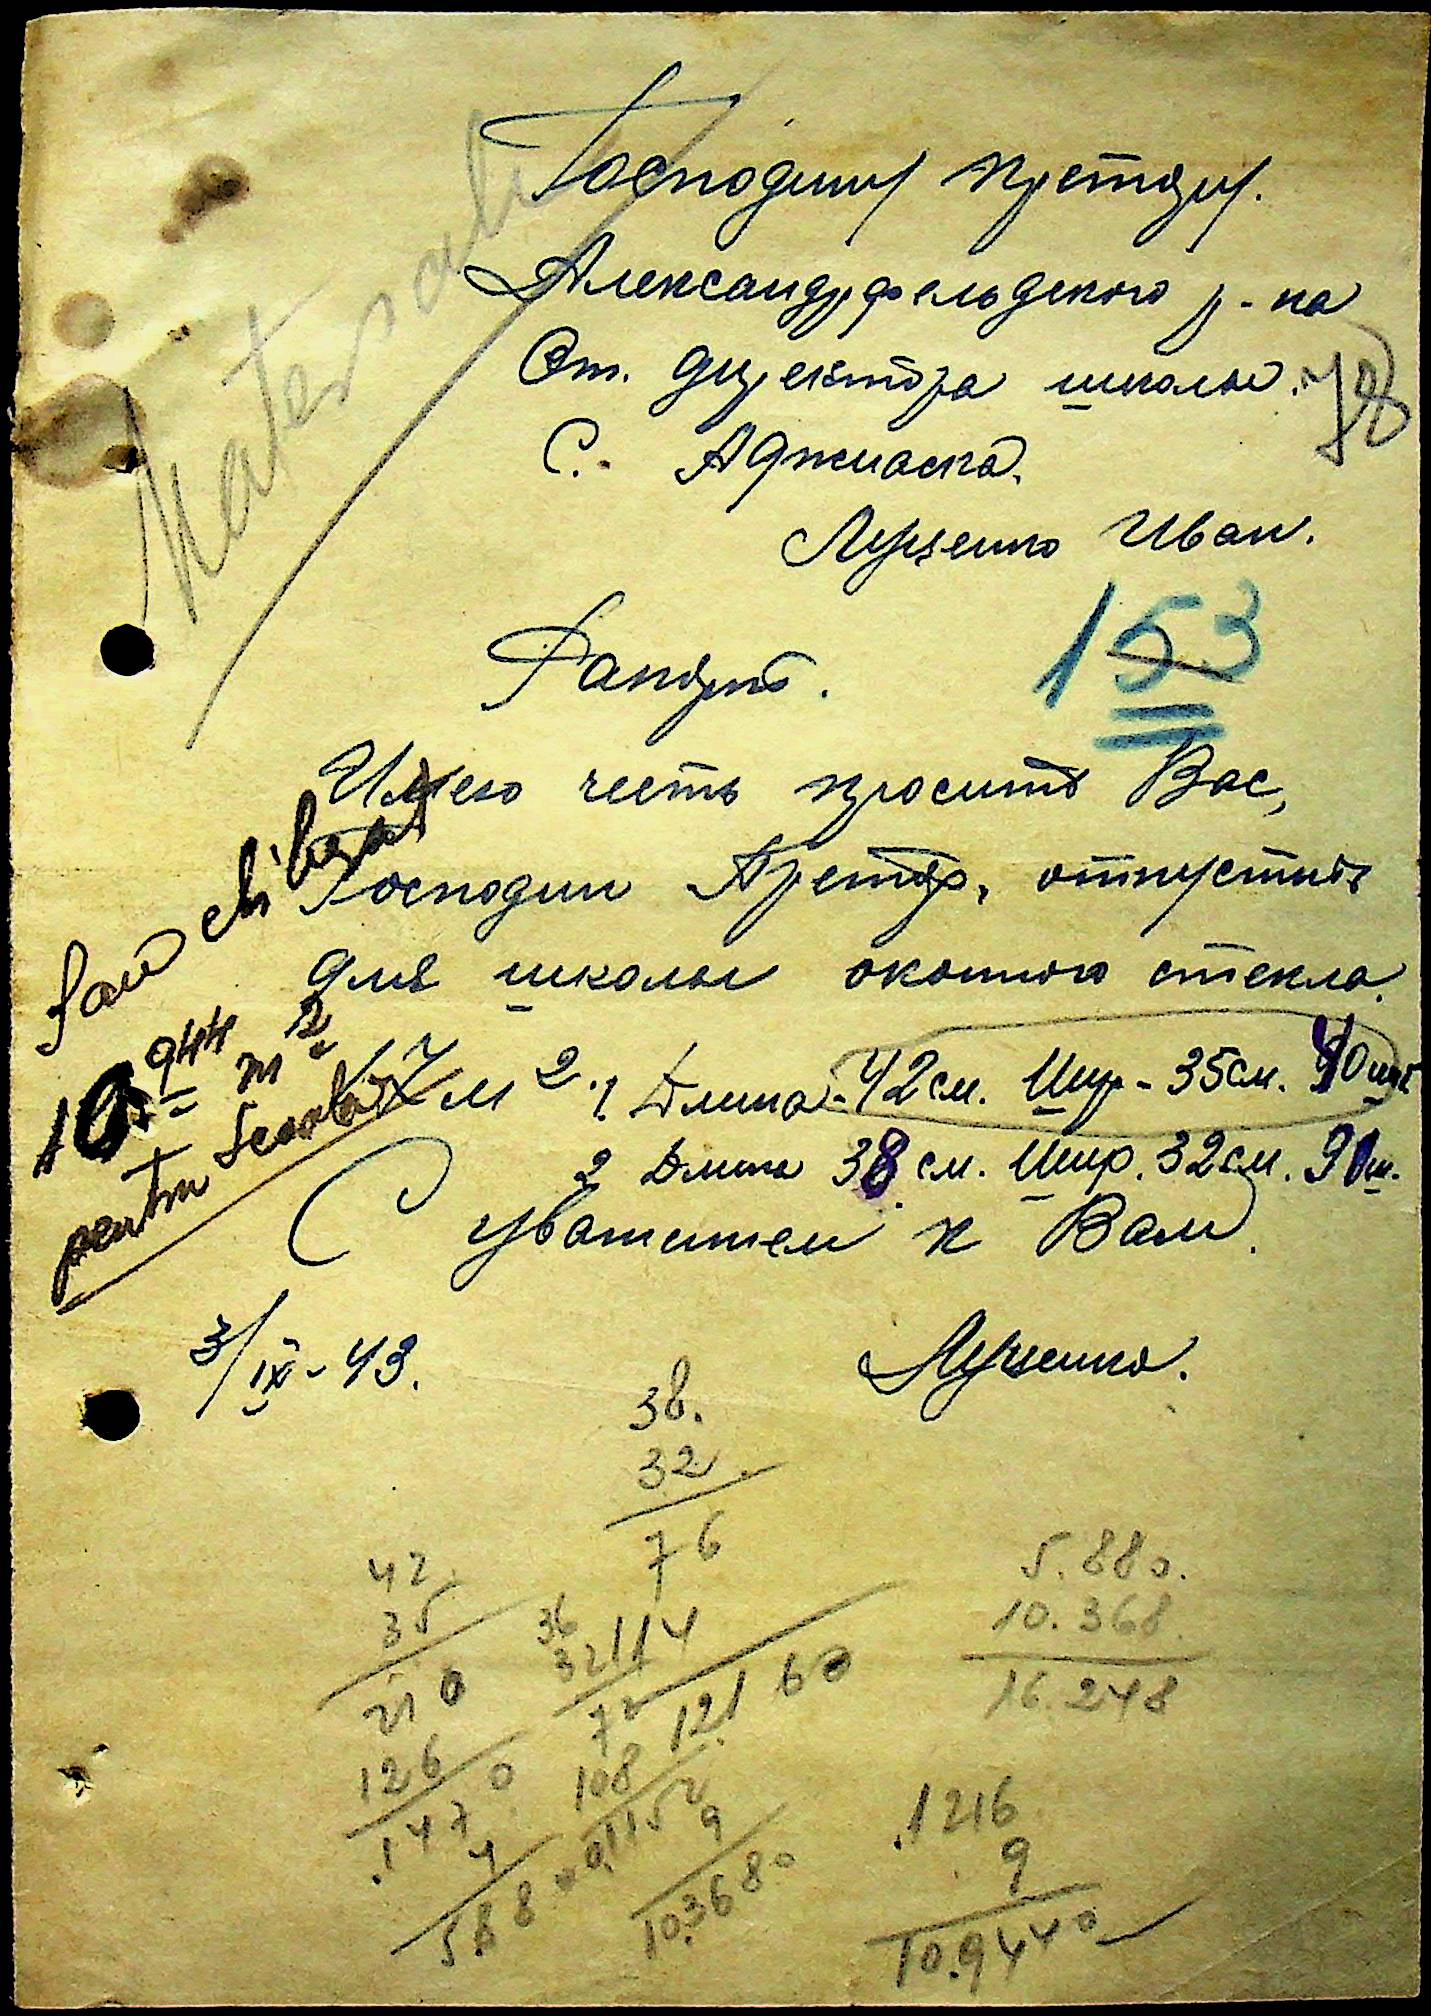 Materiale
Господину претору.
Александрфельдского р-на
От. директора школы.
78
С. Аджиаска.
Луценко Иван.
153
Рапорт.
Имею честь просить Вас,
Господин Претор, отпустить
для школы оконного стекла.
17 м 2. 1 Длина - 42 см. Шир - 35 см. 40 шт
2 Длина 38 см. Шир. 32 см. 90 ш.
С уважением к Вам.
3/IX - 43.
Луценко.
10,944 m2
pentru scoala
38.
32
76
114
12160
42
35
210
126
1470
4
5880
36
32
72
108
01152
9
103680
5.880.
10.368
16.248
1216
9
10.9440